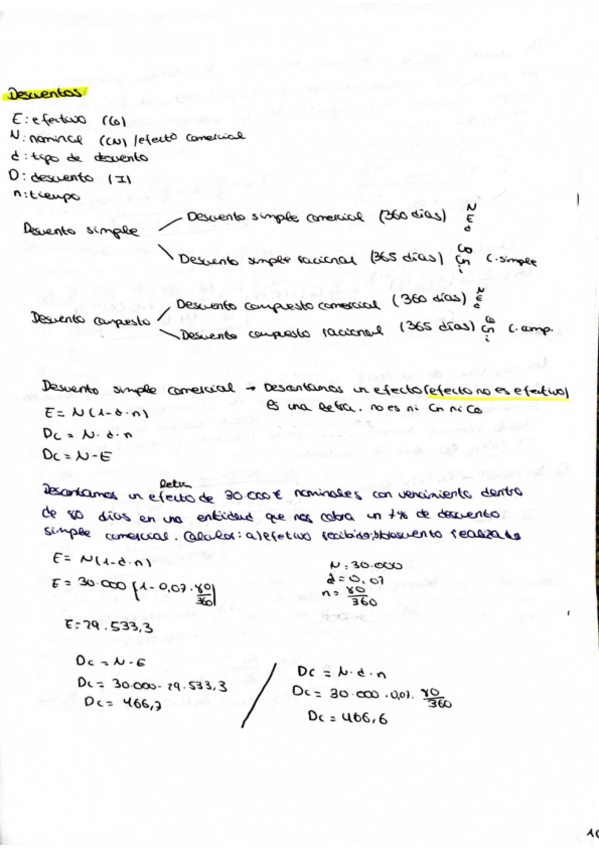 Descuentos
E: efectivo (Co)
N: nominal (CN) / efecto comercial
d: tipo de descuento
D: descuento (I)
n: tiempo
Descuento simple
Descuento simple comercial (360 días) N E d
Descuento simple racional (365 días) Co Cn i C. simple
Descuento compuesto
Descuento compuesto comercial (360 días) N E d
Descuento compuesto racional (365 días) Co Cn i C. comp.
Descuento simple comercial → Descontamos un efecto (efecto no es efectivo)
es una letra. no es ni Cn ni Co
E = N (1-d·n)
Dc = N·d·n
Dc = N-E
Letra
Descontamos un efecto de 30 000€ nominales con vencimiento dentro
de 80 días en una entidad que nos cobra un 7% de descuento
simple comercial. Calcular: a) efectivo recibido; b) descuento realizado
E = N (1-d·n)
N: 30.000
d = 0,07
n = 80/360
E = 30.000 [1-0,07·80/360]
E = 29.533,3
Dc = N-E
Dc = 30.000-29.533,3
Dc = 466,7
Dc = N·d·n
Dc = 30.000·0,07·80/360
Dc = 466,6